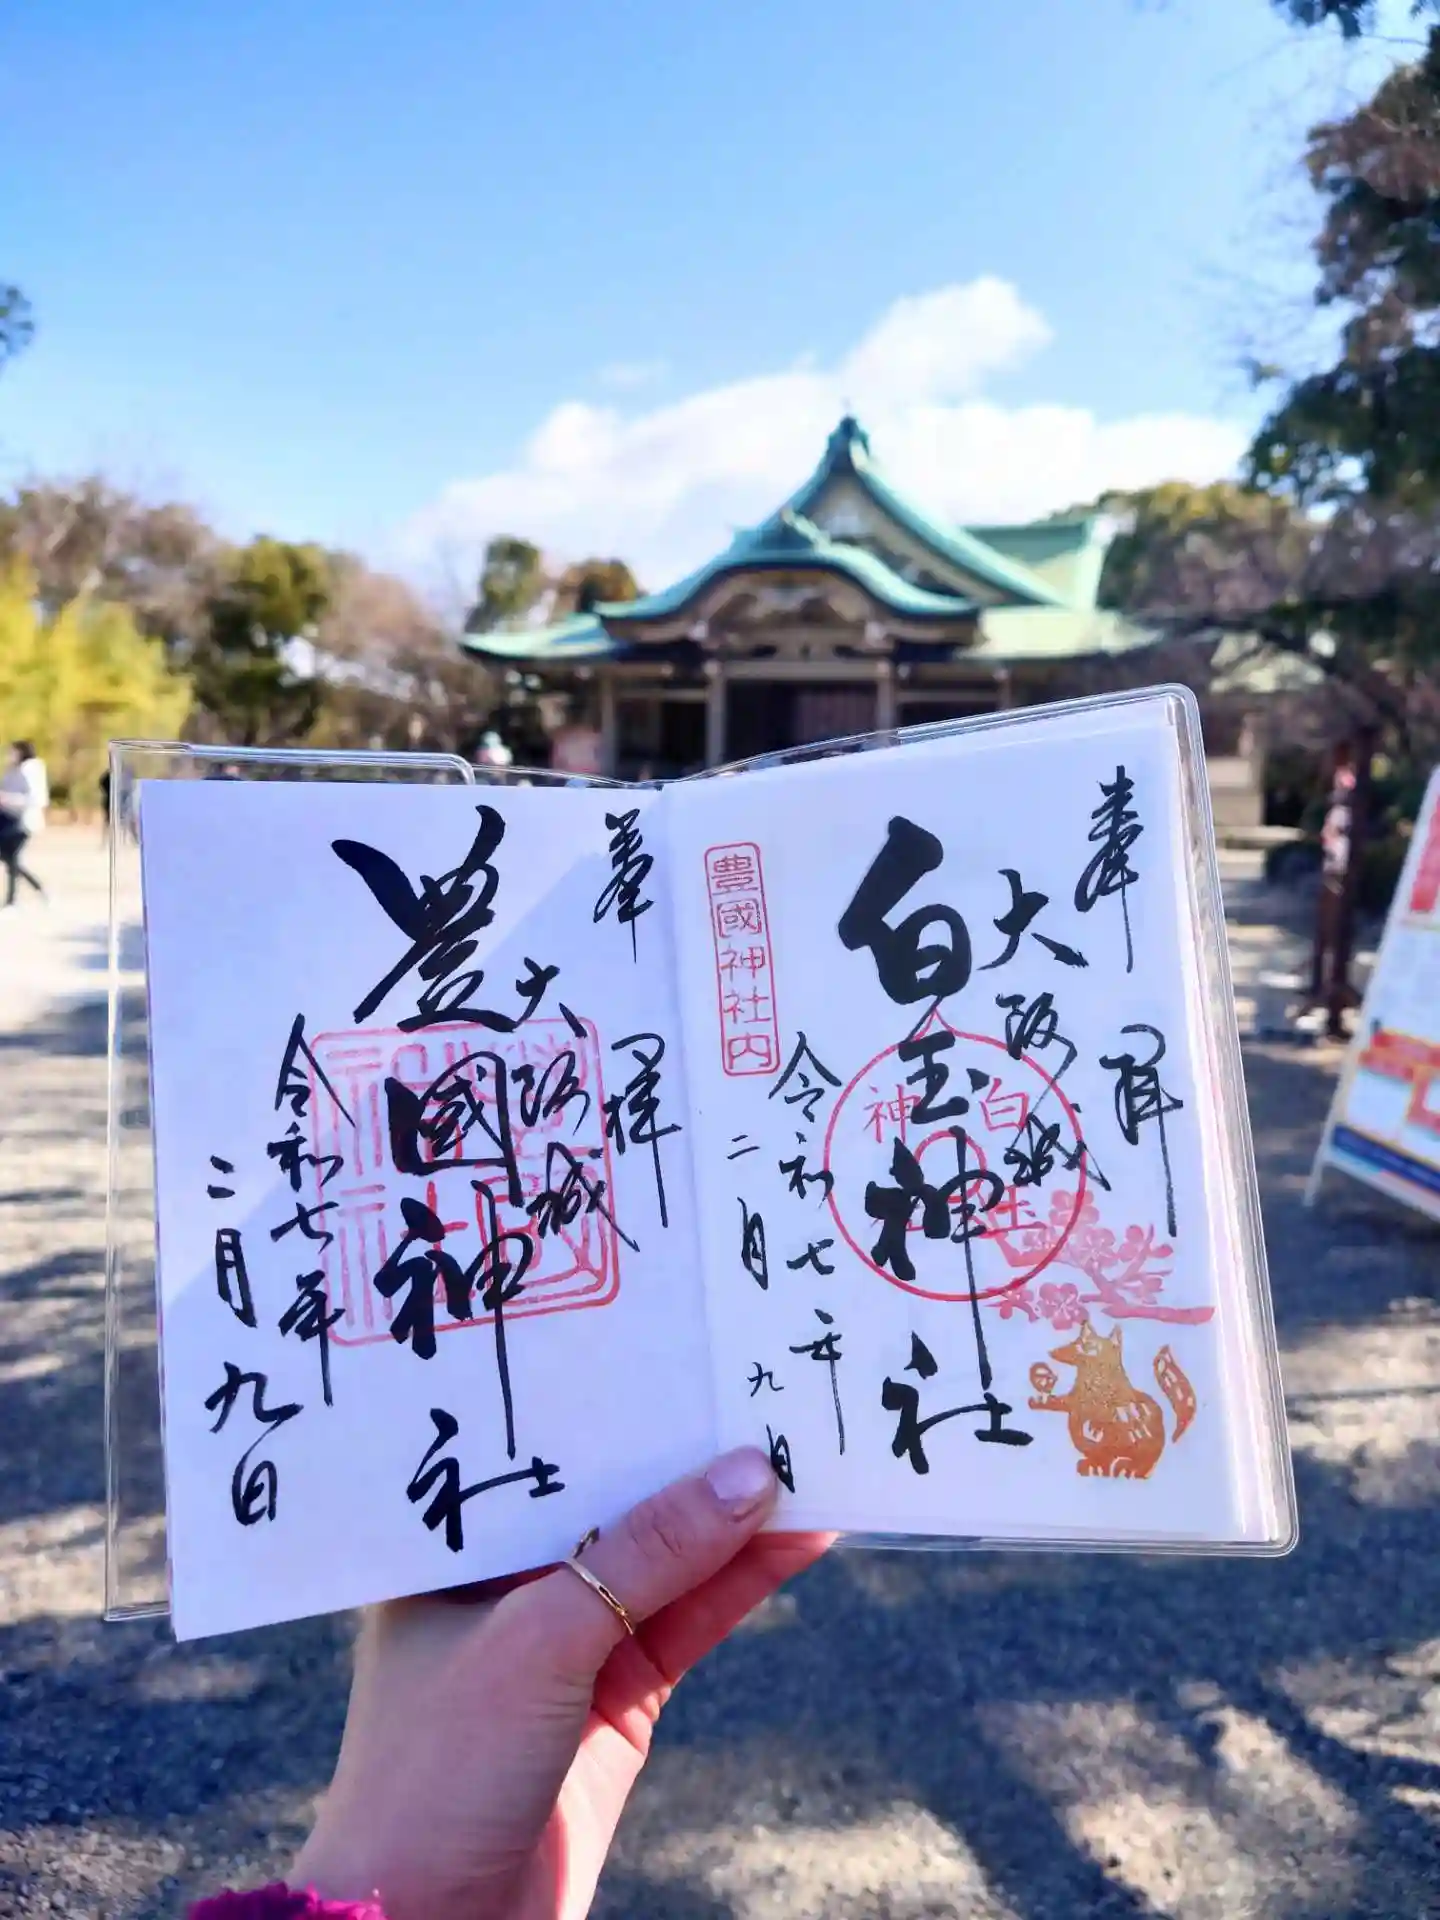 奉拝
大阪城
白玉神社
白玉神社
豊國神社内
令和七年
二月九日
奉拝
大阪城
豊國神社
令和七年
二月九日